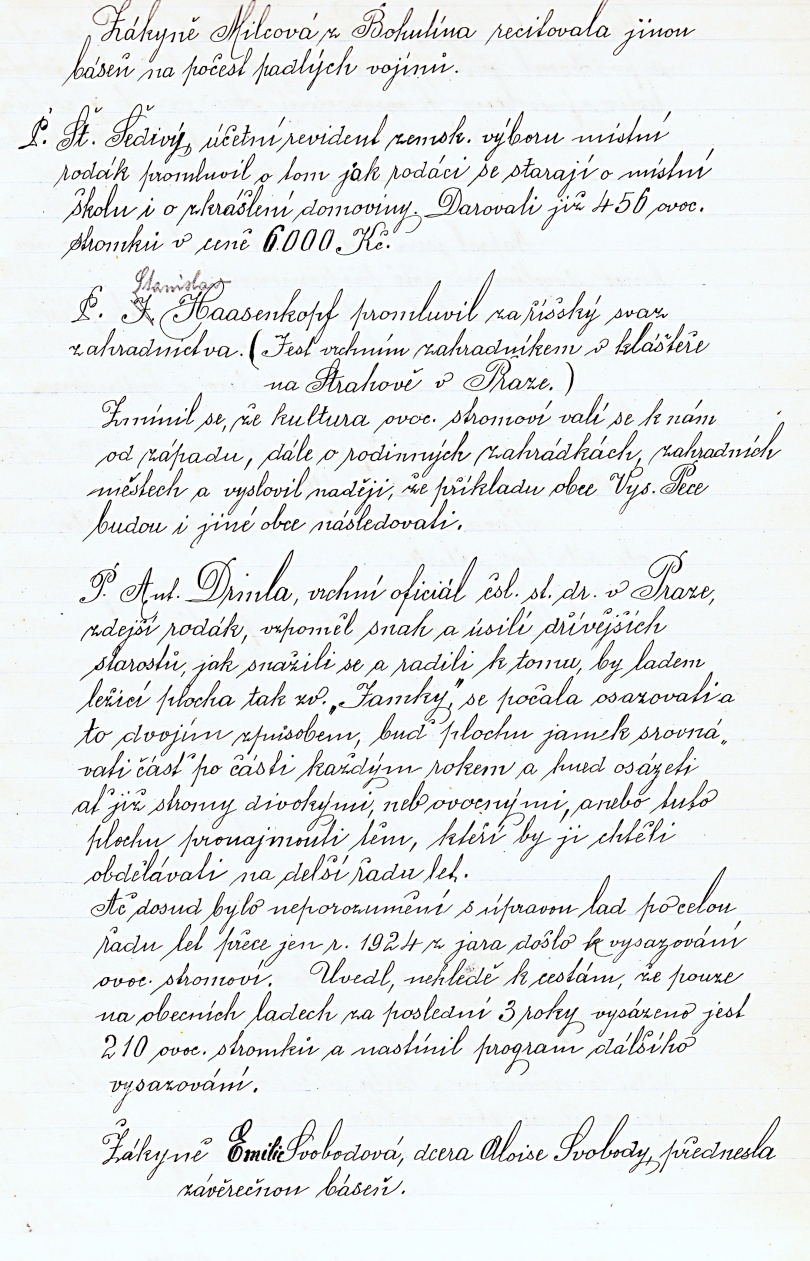 Žákyně Milcová z Bohutína recitovala jinou
báseň na počest padlých vojínů.
P. Št. Šedivý, účetní revident zemsk. výboru místní
rodák promluvil o tom jak rodáci se starají o místní
školu i o zkrášlení domoviny. Darovali již 456 ovoc.
stromků v ceně 6.000 Kč.
Stanislav
P. J. Haasenkopf promluvil za říšský svaz
zahradnictva. (Jest vrchním zahradníkem v klášteře
na Strahově v Praze.)
Zmínil se, že kultura ovoc. stromoví valí se k nám
od západu, dále o rodinných zahrádkách, zahradních
městech a vyslovil naději, že příkladu obce Vys. Pece
budou i jiné obce následovati.
P. Ant. Drmla, vrchní oficiál čsl. st. dr. v Praze,
zdejší rodák, vzpoměl snah a úsilí dřívějších
starostů, jak snažili se a radili k tomu, by ladem
ležící plocha tak zv. „Jamky," se počala osazovati a
to dvojím způsobem, buď plochu jamek srovná„
vati část po části každým rokem a hned osázeti
ať již stromy divokými, neb ovocnými, anebo tuto
plochu pronajmouti těm, kteří by ji chtěli
obdělávati na delší řadu let.
Ač dosud bylo neporozumění s úpravou lad po celou
řadu let přece jen r. 1924 z jara došlo k vysazování
ovoc. stromoví. Uvedl, nehledě k cestám, že pouze
na obecních ladech za poslední 3 roky vysázeno jest
210 ovoc. stromků a nastínil program dalšího
vysazování.
Žákyně Emilie Svobodová, dcera Aloise Svobody, přednesla
závěrečnou báseň.